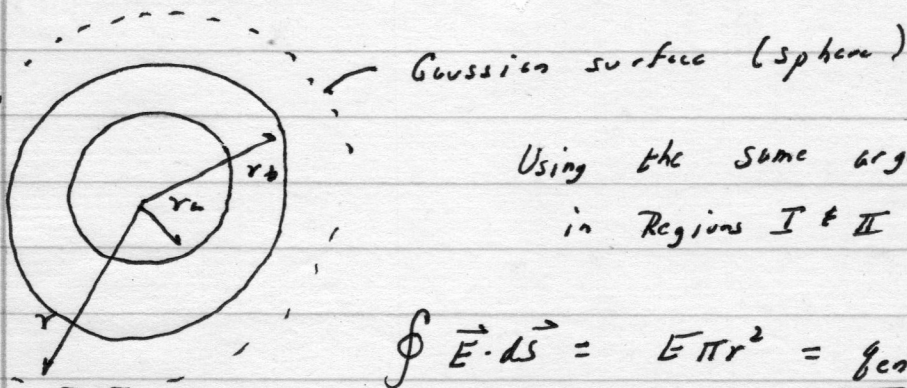 Gaussian surface (sphere)
Using the same arg
rb
ra
in Regions I & II
r
∮ E⃗·dS⃗ = Eπr² = qen